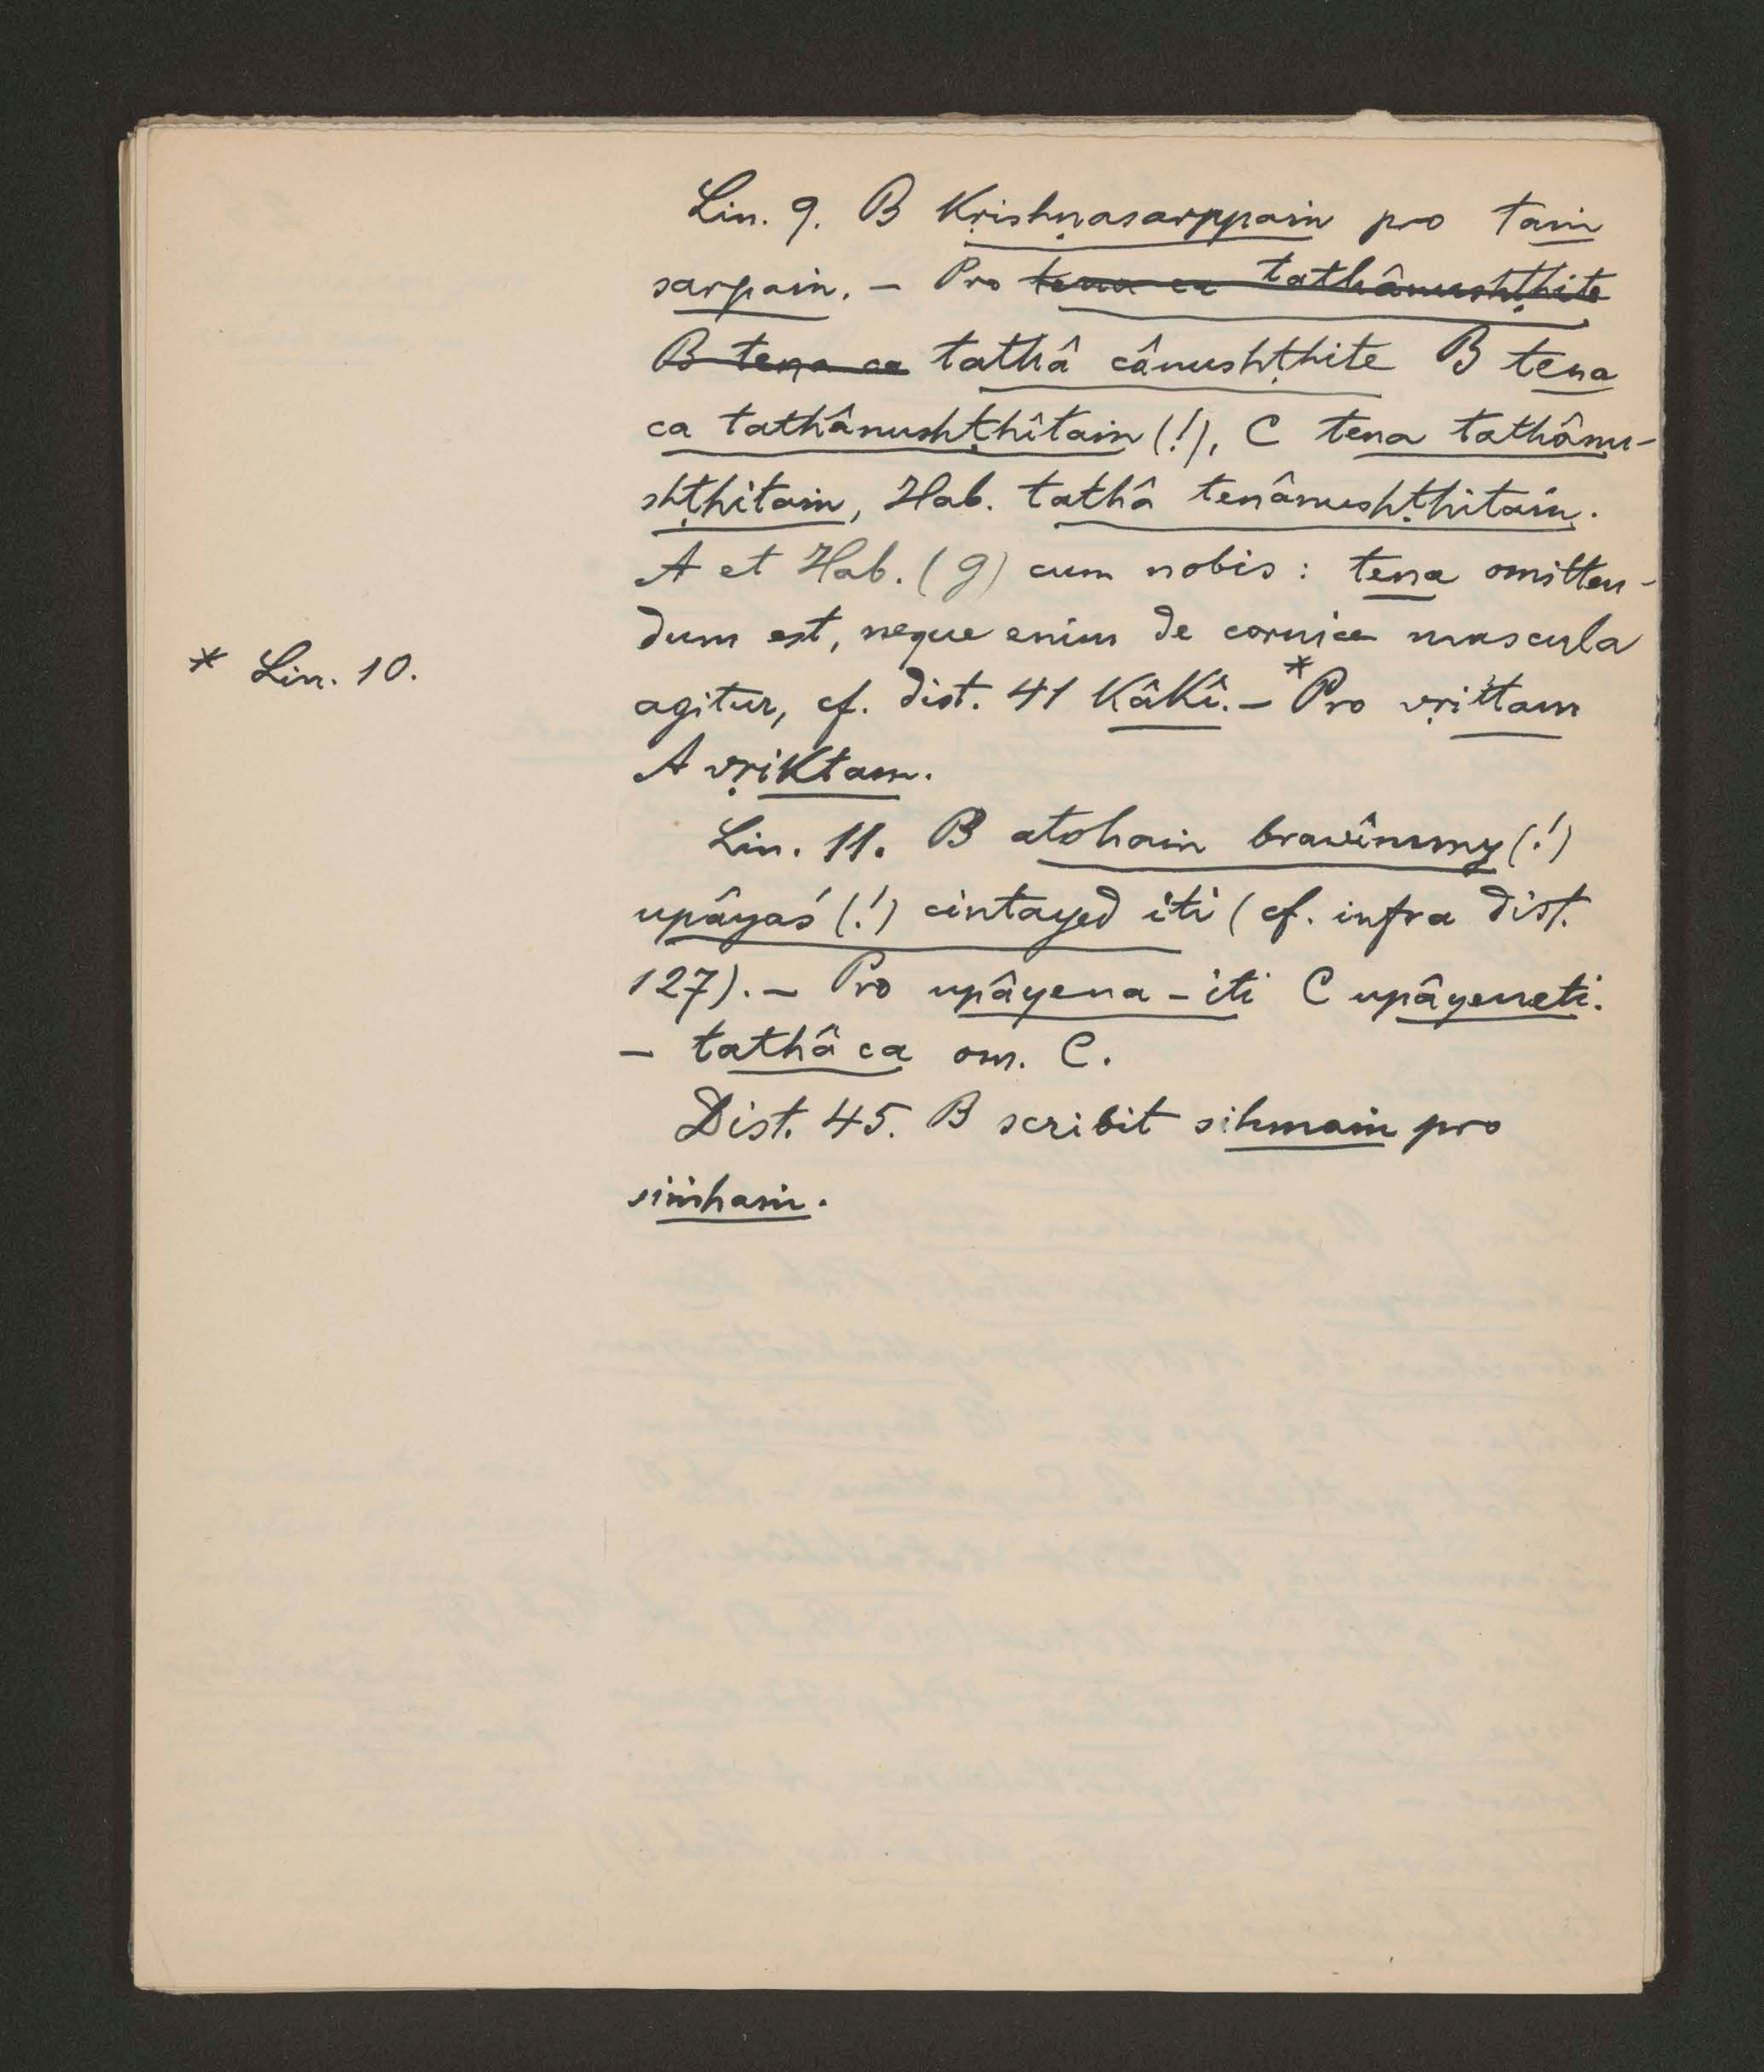 Lin. 9. B kṛishṇasarppaṁ pro taṁ
sarpaṁ. – Pro tena ca tathânushṭhite
B tena ca tathâ cânushṭhite B tena
ca tathânushṭhîtaṁ (!), C tena tathânu-
shṭhitaṁ, Hab. tathâ tenânushṭhitaṁ.
A et Hab. (g) cum nobis: tena omitten-
dum est, neque enim de cornice mascula
* Lin. 10.
agitur, cf. dist. 41 kâkî. – *Pro vṛittam
A vṛiktam.
Lin. 11. B atohaṁ bravîmmy (!)
upâyaś (!) cintayed iti (cf. infra dist.
127). – Pro upâyena-iti C upâyeneti.
– tathâ ca om. C.
Dist. 45. B scribit sihmaṁ pro
siṁhaṁ.